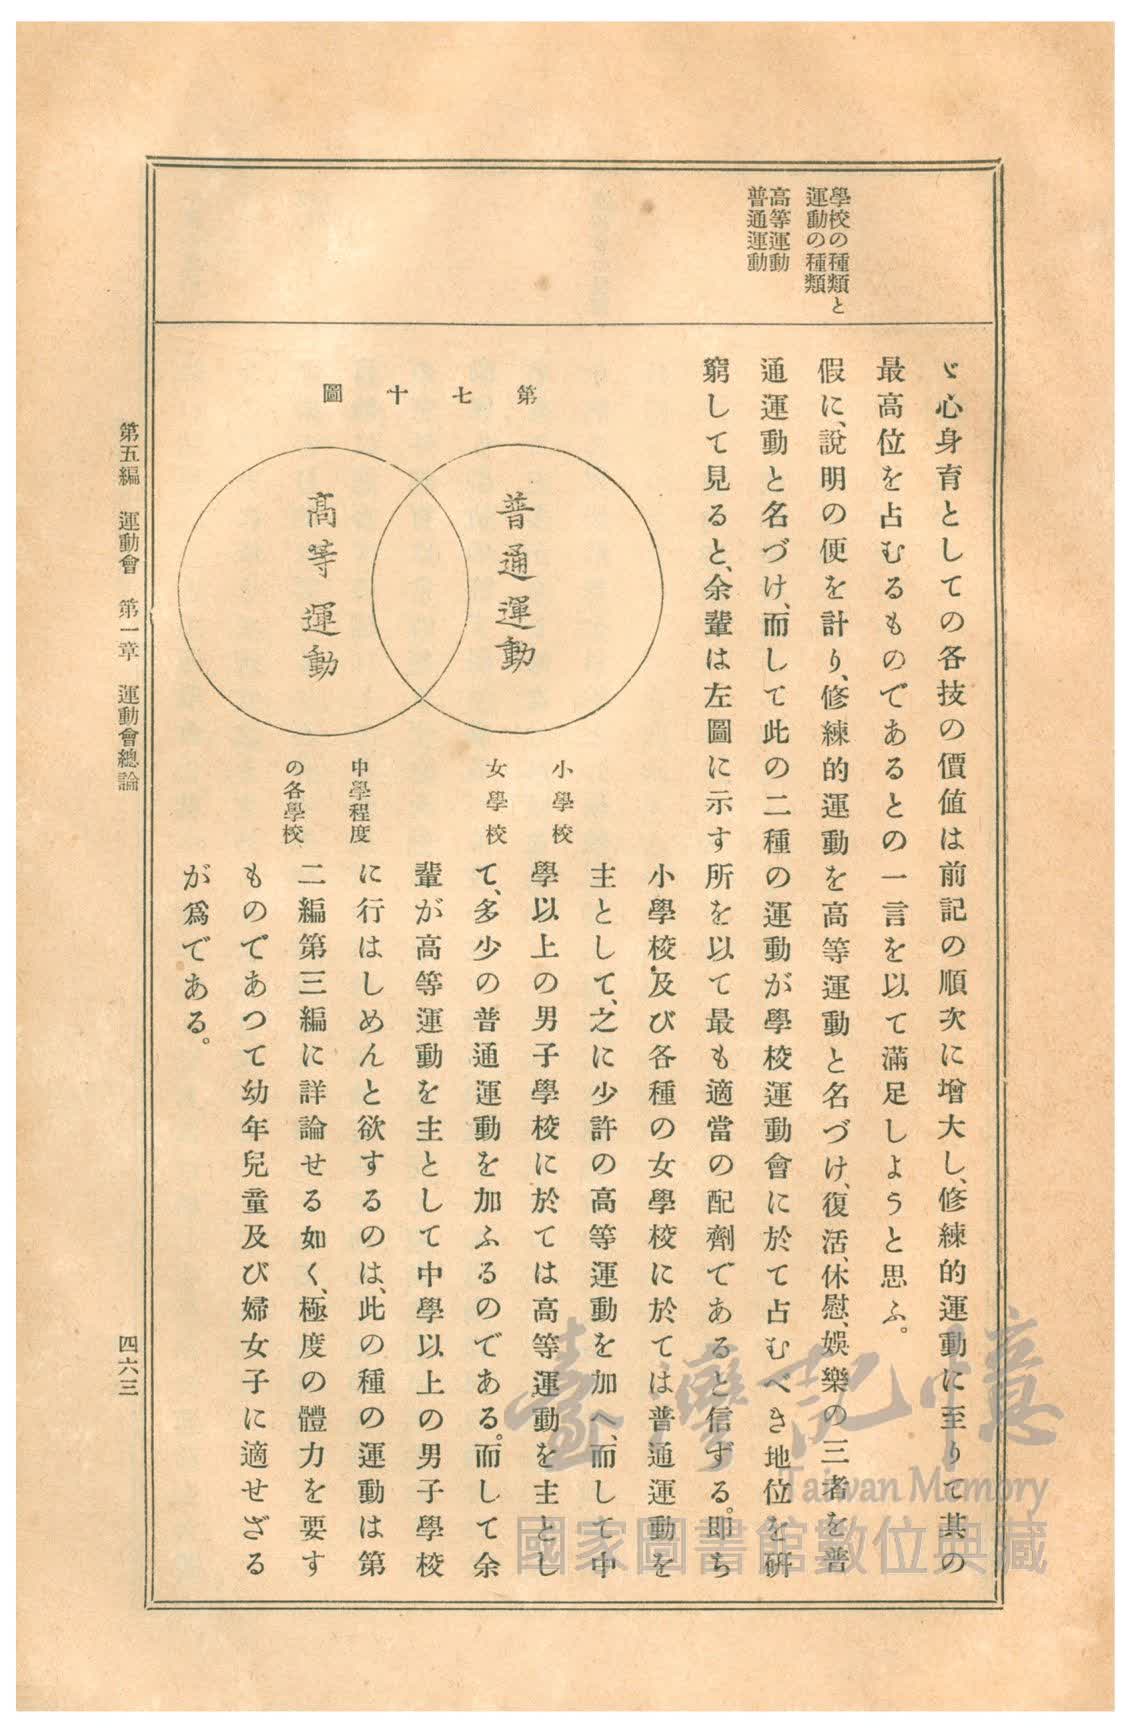 學校の種類と
運動の種類
高等運動
普通運動
ゞ心身育としての各技の價値は前記の順次に增大し、修練的運動に至りて其の
最高位を占むるものであるとの一言を以て滿足しようと思ふ。
假に、說明の便を計り、修練的運動を高等運動と名づけ、復活、休慰、娛樂の三者を普
通運動と名づけ、而して此の二種の運動が學校運動會に於て占むべき地位を硏
窮して見ると、余輩は左圖に示す所を以て最も適當の配劑であると信ずる。卽ち
第七十圖
普通運動
高等運動
小學校
女學校
中學程度
の各學校
小學校及び各種の女學校に於ては普通運動を
主として、之に少許の高等運動を加へ、而して中
學以上の男子學校に於ては高等運動を主とし
て、多少の普通運動を加ふるのである。而して余
輩が高等運動を主として中學以上の男子學校
に行はしめんと欲するのは、此の種の運動は第
二編第三編に詳論せる如く、極度の體力を要す
ものであつて幼年兒童及び婦女子に適せざる
が爲である。
第五編 運動會 第一章 運動會總論
四六三
臺灣記憶
Taiwan Memory
國家圖書館數位典藏